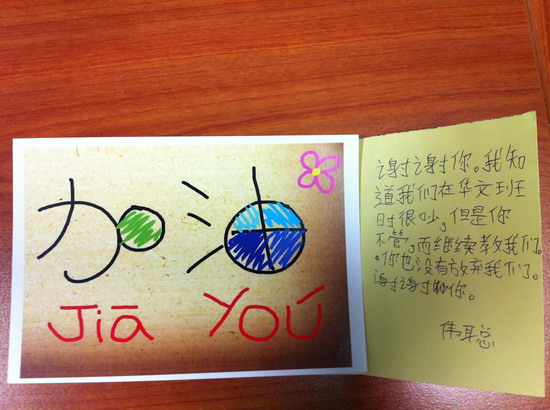 加油
Jiā YOÚ
谢谢你。我知
道我们在华文班
时很吵，但是你
不管，而继续教我们
。你也没有放弃我们。
谢谢你。
伟聪